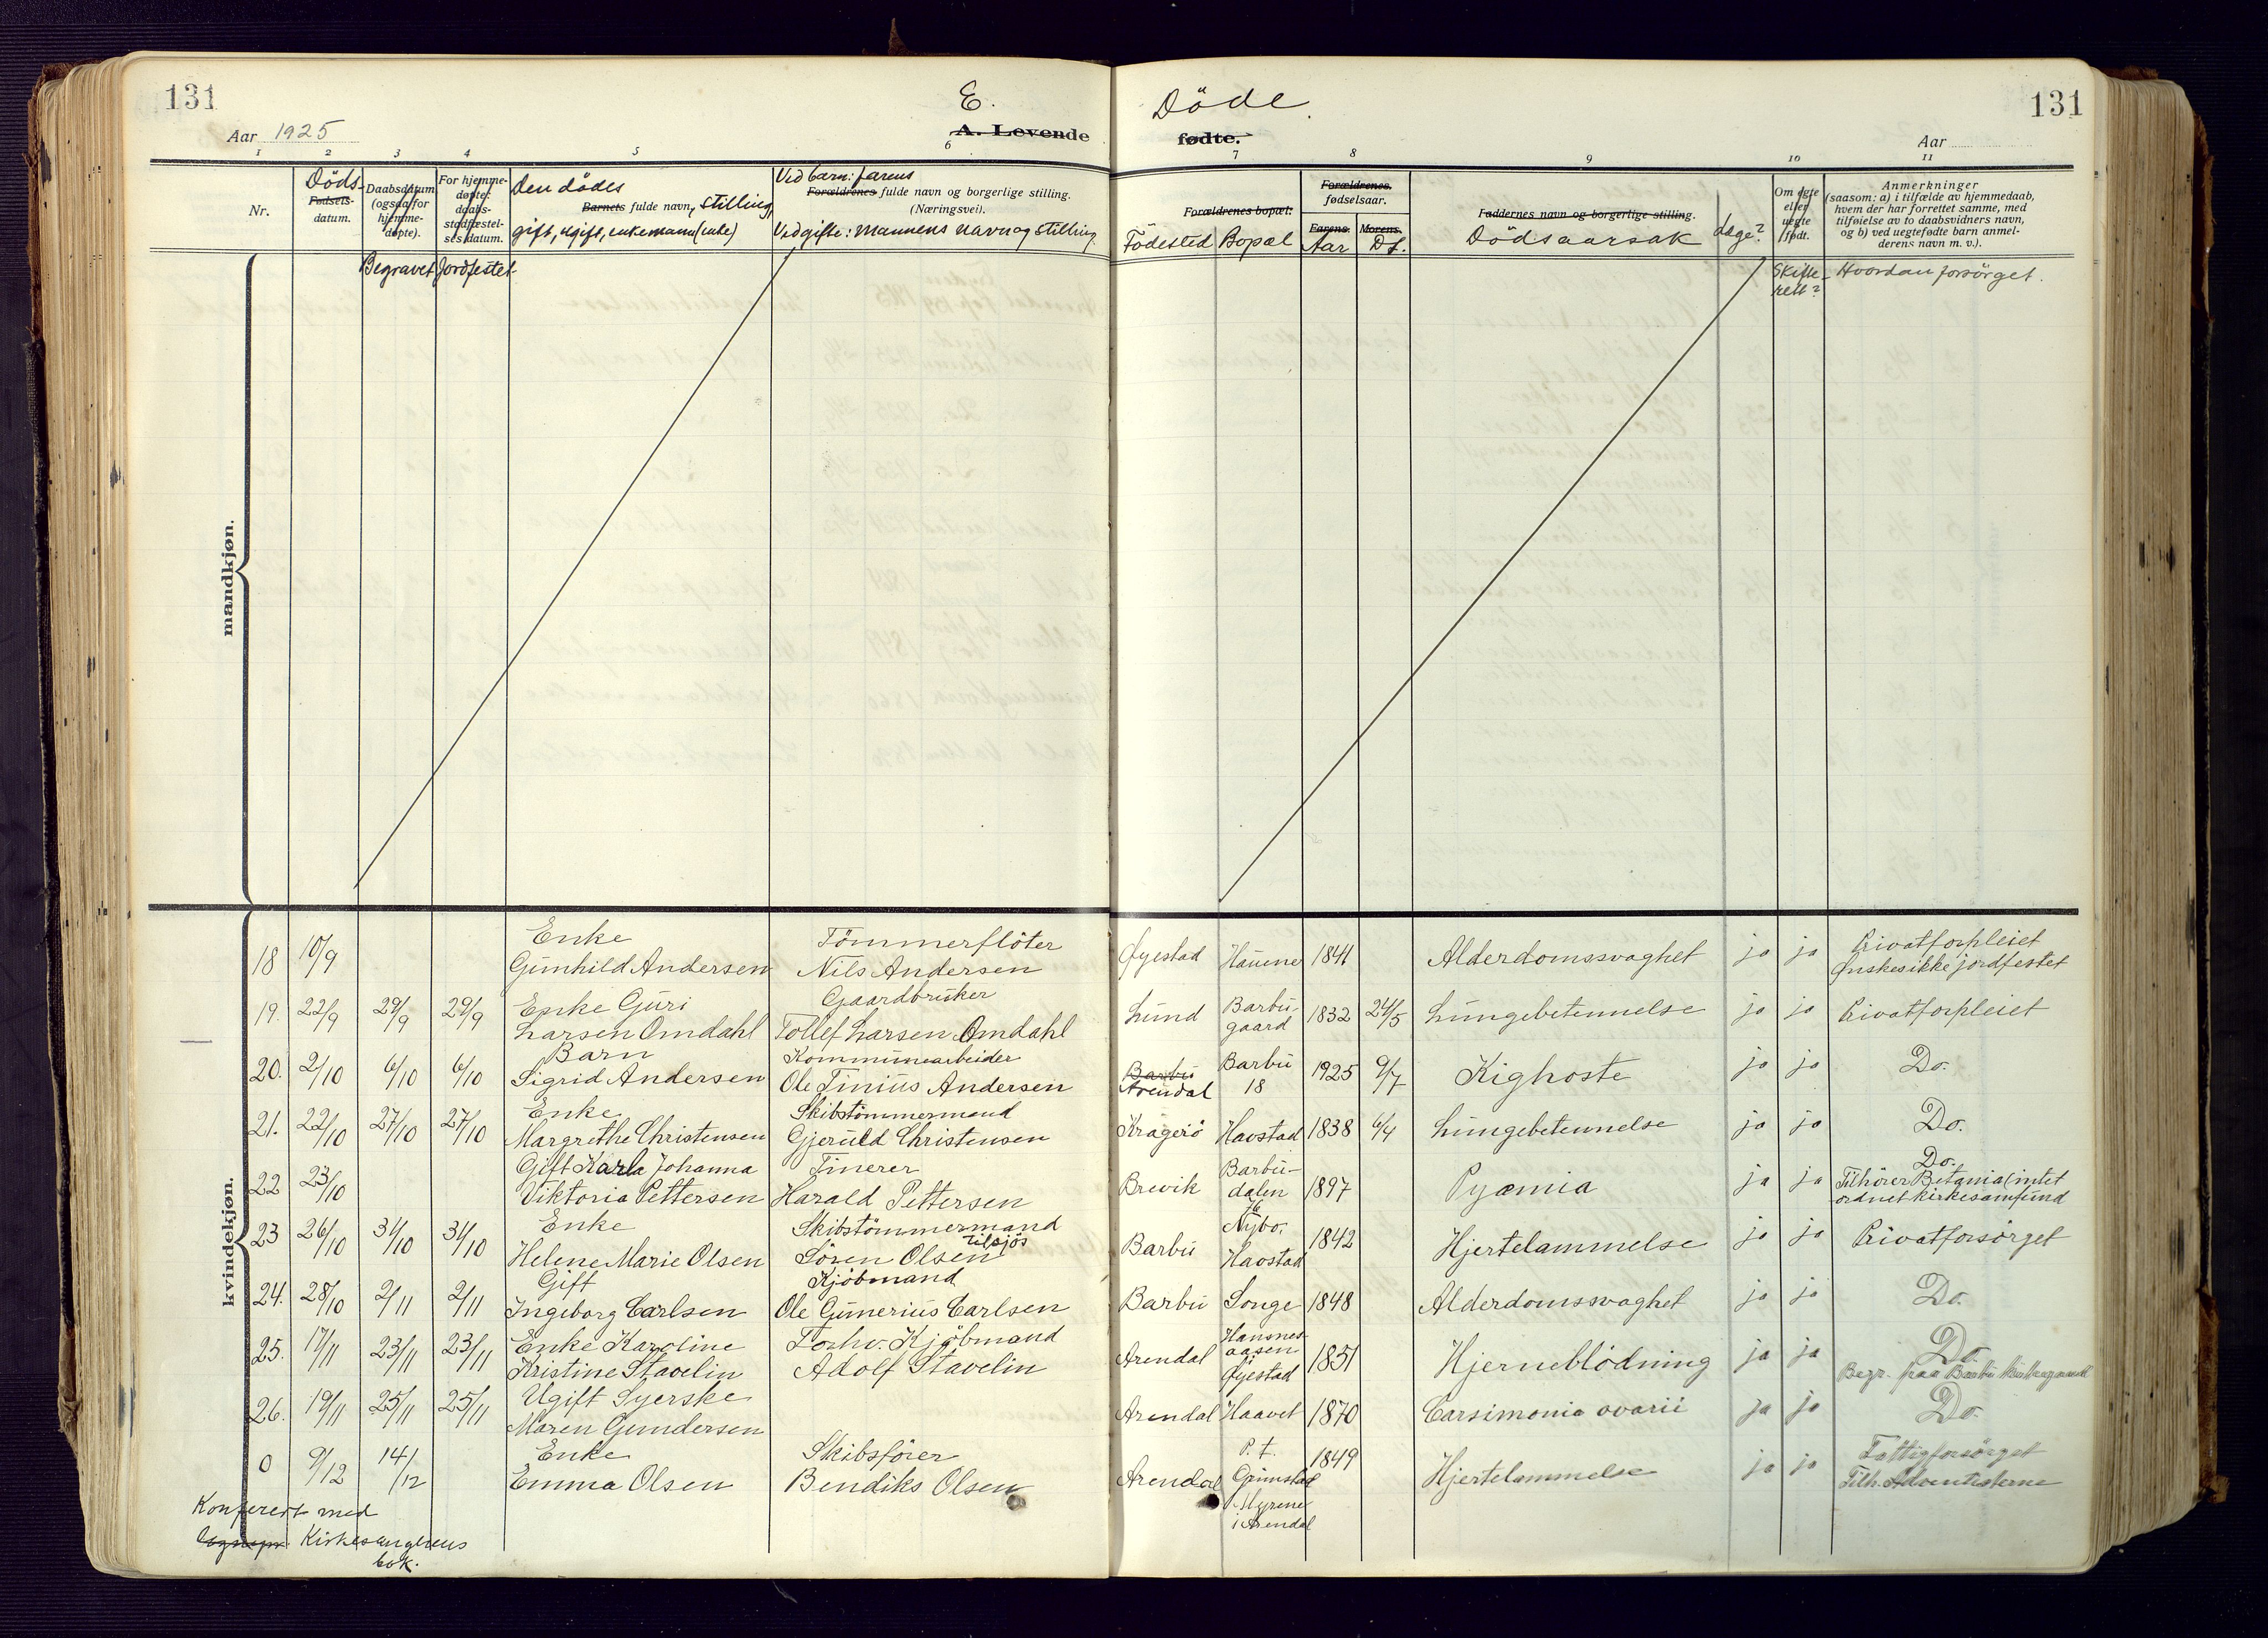 131
Aar 1925
E. Döde.
A. Levende fødte.
131
Aar
1 2 3 4 5 6 7 8 9 10 11
Nr.
Döds-
Fødsels-
datum.
Daabsdatum
(ogsaa for
hjemme-
døpte).
For hjemme-
døpte:
daabs-
stadfæstel-
ses datum.
Den dödes
Barnets fulde navn, stilling,
gift, ugift, enkemann (enke)
Ved barn: farens
Forældrenes fulde navn og borgerlige stilling.
(Næringsvei).
Ved gifte: mannens navn og stilling.
Forældrenes bopæl.
Födested Bopæl
Forældrenes
fødselsaar.
Farens. Morens.
Aar D.f.
Faddernes navn og borgerlige stilling.
Dödsaarsak
Læge?
Om egte
eller
uegte
født.
Anmerkninger
(saasom: a) i tilfælde av hjemmedaab,
hvem der har forrettet samme, med
tilføielse av to daabsvidners navn,
og b) ved uegtefødte barn anmel-
derens navn m. v.).
Begravet Jordfestet
Skifte-
rett?
Hvordan forsörget.
mandkjøn.
kvindekjøn.
18 10/9 Enke Gunhild Andersen Tömmerflöter Nils Andersen Øyestad Hauene 1841 Alderdomssvaghet ja ja Privatforpleiet
Ønskes ikke jordfestet
19. 22/9 29/9 29/9 Enke Guri Larsen Omdahl Gaardbruker Tollef Larsen Omdahl Lund Barbu-
gaard 1832 24/5 Lungebetennelse ja ja Privatforpleiet
20. 2/10 6/10 6/10 Barn Sigrid Andersen Kommunearbeider Ole Tinius Andersen Barbu
Arendal Barbu
18 1925 9/7 Kighoste ja ja Do.
21. 22/10 27/10 27/10 Enke Margrethe Christensen Skibstömmermand Gjeruld Christensen Kragerö Havstad 1838 6/4 Lungebetennelse ja ja Do.
22 23/10 Gift Karla Johanna Viktoria Pettersen Tinerer Harald Pettersen Brevik Barbu-
dalen 1897 Pyæmia ja ja Do.
Tilhörer Betania (intet
ordnet kirkesamfund
23 26/10 31/10 31/10 Enke Helene Marie Olsen Skibstömmermand tilsjös Sören Olsen Barbu Nybo.
Havstad 1842 Hjertelammelse ja ja Privatforsörget
24. 28/10 2/11 2/11 Gift Ingeborg Carlsen Kjöbmand Ole Gunerius Carlsen Barbu Songe 1848 Alderdomssvaghet ja ja Do.
25. 17/11 23/11 23/11 Enke Karoline Kristine Stavelin Forhv. Kjöbmand Adolf Stavelin Arendal Hansnes-
aasen
Øyestad 1851 Hjerneblödning ja ja Do.
Begr. paa Barbu kirkegaard
26. 19/11 25/11 25/11 Ugift Syerske Maren Gundersen Arendal Haavet 1870 Carsimonia ovarii ja ja Do.
0 9/12 14/12 Enke Emma Olsen Skibsförer Bendiks Olsen Arendal P.t.
Grimstad
Myrene
i Arendal 1849 Hjertelammelse ja ja Fattigforsörget
Tilh. Adventisterne
Konferert med
Kirkesangerens
bok.